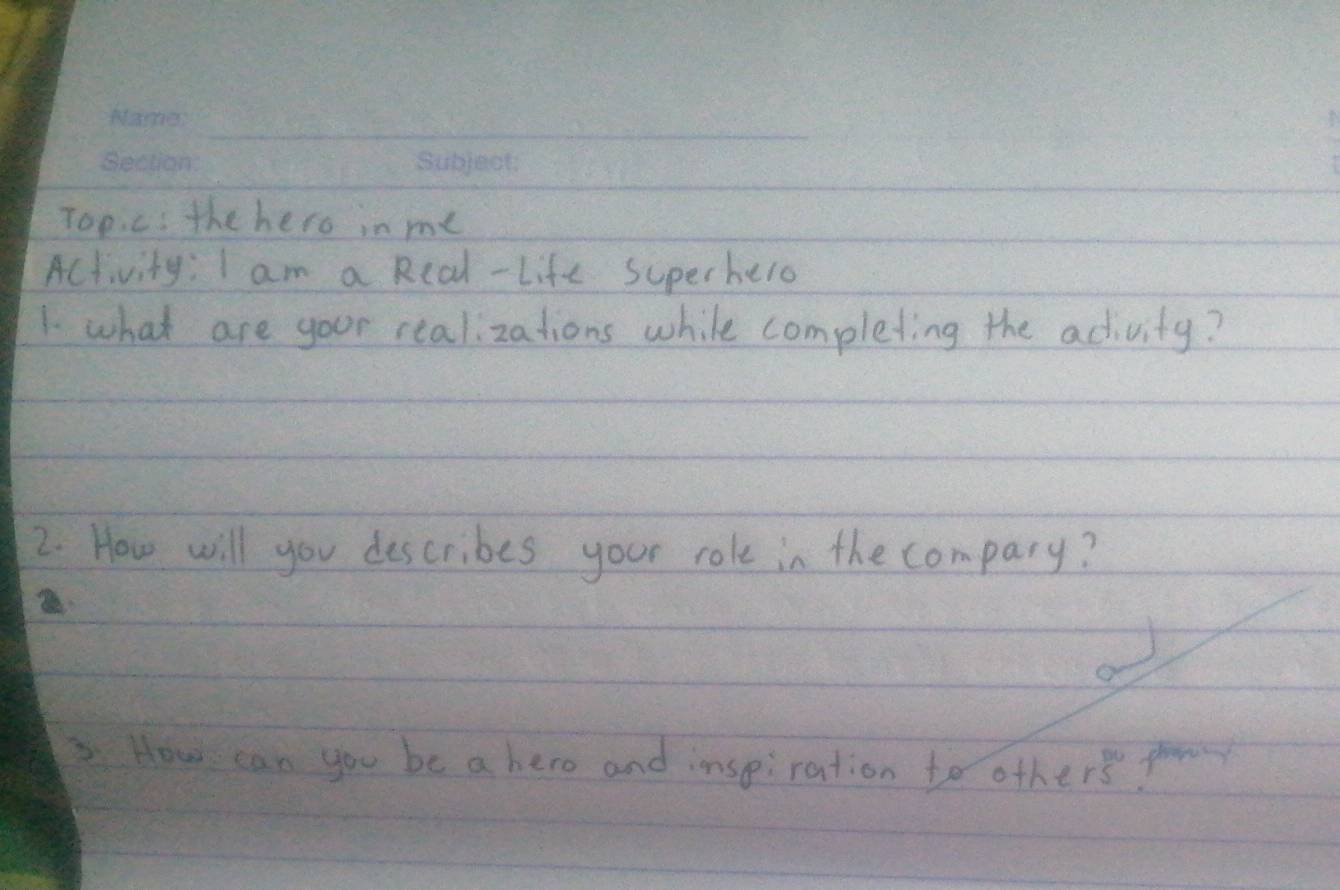 Name:
Section: Subject:
Topic: the hero in me
Activity: I am a Real-Life Superhero
1. what are your realizations while completing the activity?
2. How will you describes your role in the compary?
2.
3. How can you be a hero and inspiration to others?